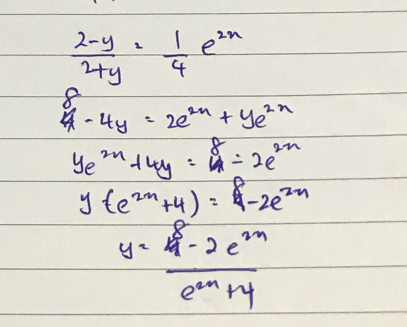 (2-y)/(2+y) = 1/4 e^(2n)
8 - 4y = 2e^(2n) + ye^(2n)
ye^(2n) + 4y = 8 - 2e^(2n)
y (e^(2n) + 4) = 8 - 2e^(2n)
y = (8 - 2e^(2n))/(e^(2n) + 4)